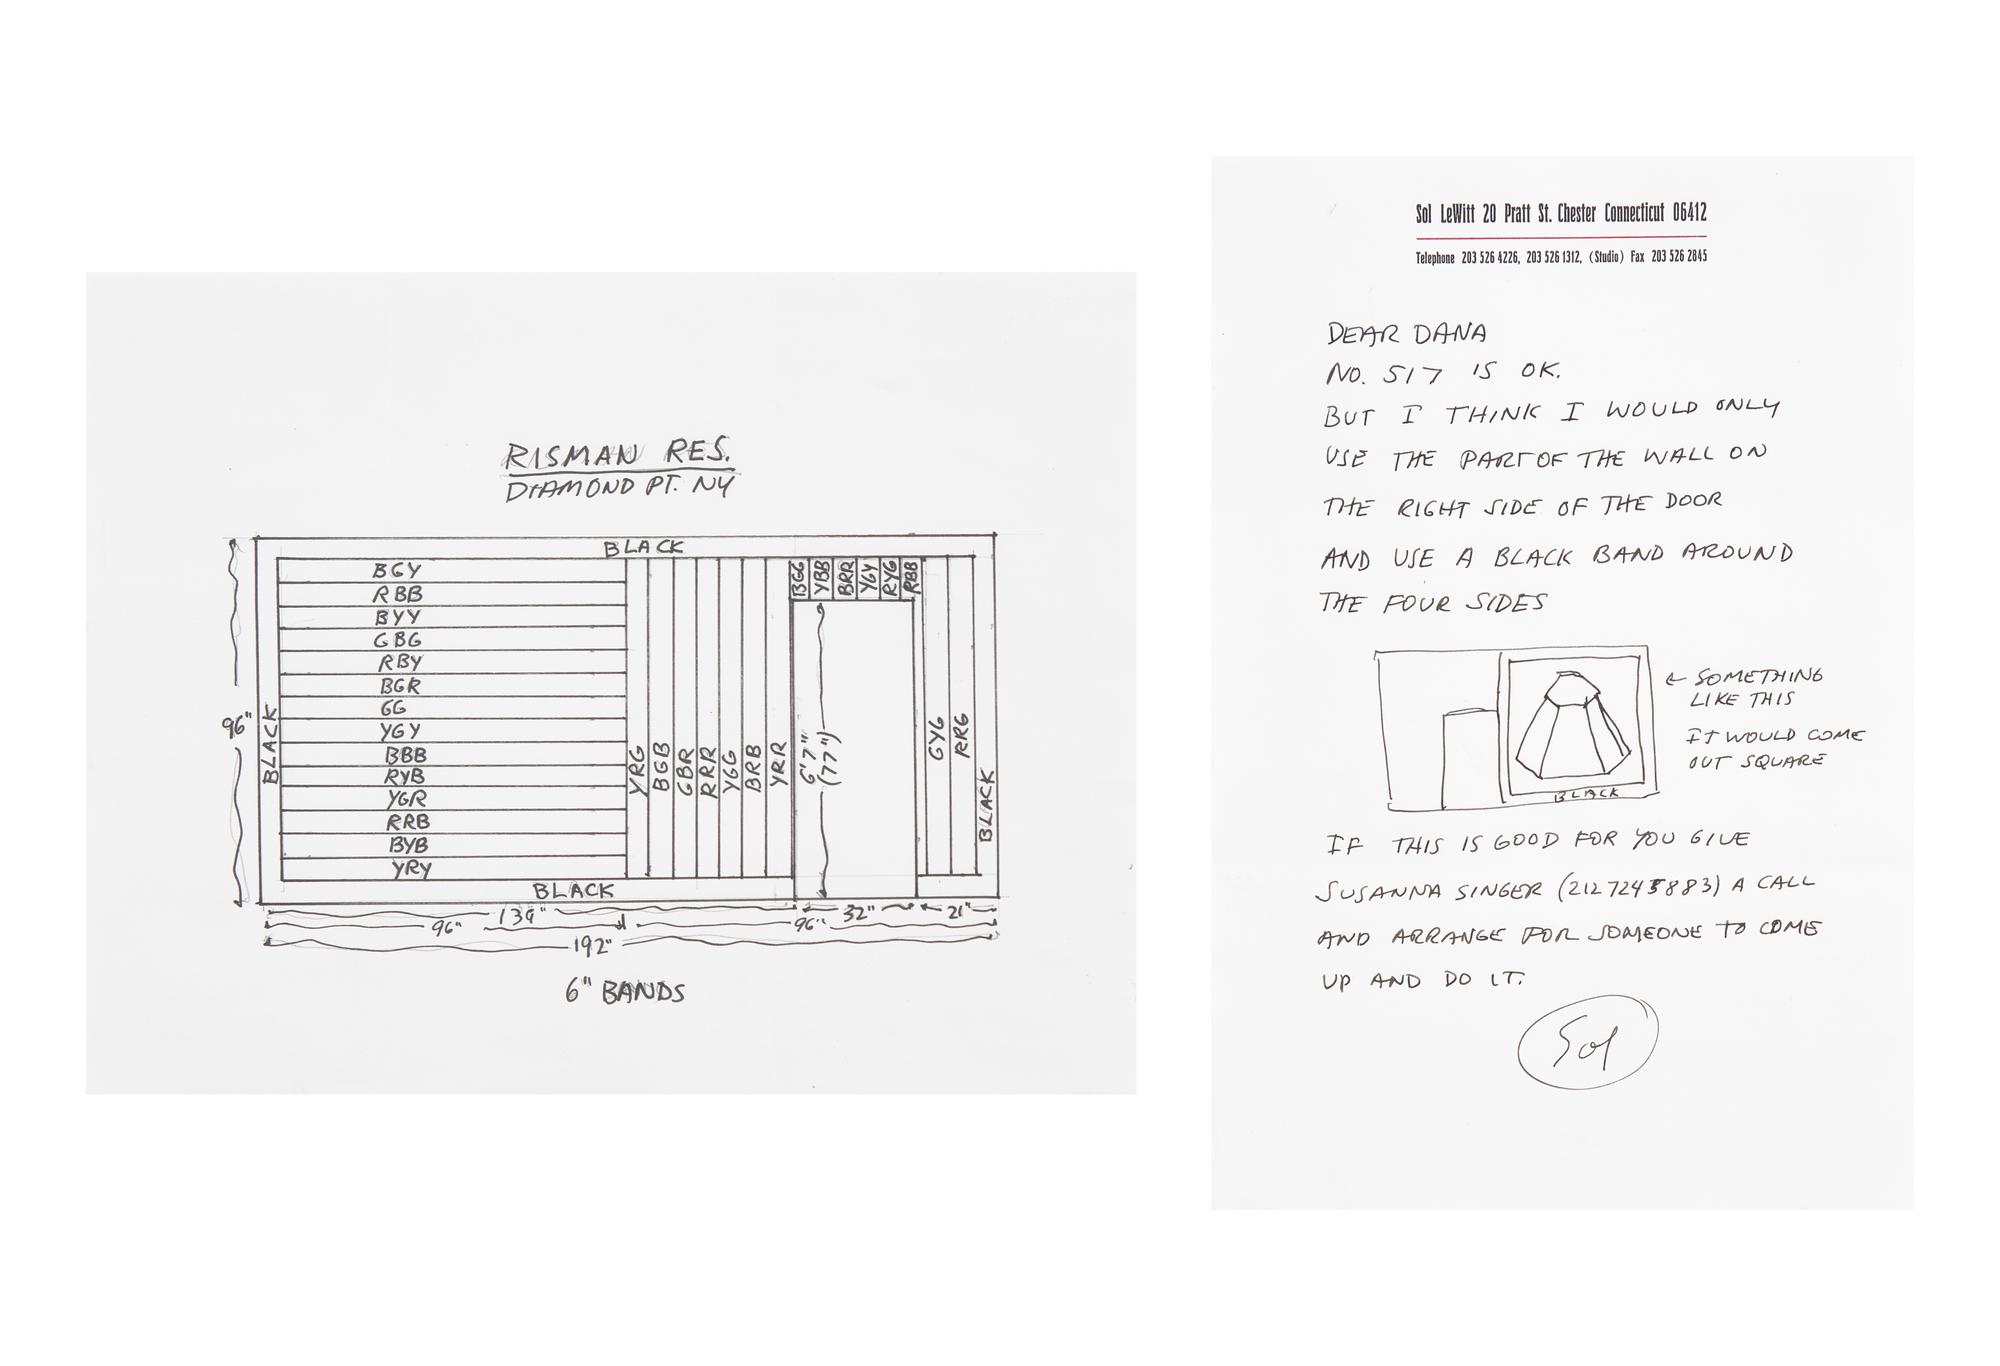 RISMAN RES.
DIAMOND PT. NY
BLACK
BGY
RBB
BYY
GBG
RBY
BGR
GG
YGY
BBB
RYB
YGR
RRB
BYB
YRY
BLACK
YRG
BGB
GBR
RRR
YGG
BRB
YRR
BGG
YBB
BRR
YGY
RYG
RBB
6'7"
(77")
GYG
RRG
BLACK
BLACK
96"
139" 32" 21"
96" 96"
192"
6" BANDS
Sol LeWitt 20 Pratt St. Chester Connecticut 06412
Telephone 203 526 4226, 203 526 1312, (Studio) Fax 203 526 2845
DEAR DANA
NO. 517 IS OK.
BUT I THINK I WOULD ONLY
USE THE PART OF THE WALL ON
THE RIGHT SIDE OF THE DOOR
AND USE A BLACK BAND AROUND
THE FOUR SIDES
← SOMETHING
LIKE THIS
IT WOULD COME
OUT SQUARE
BLACK
IF THIS IS GOOD FOR YOU GIVE
SUSANNA SINGER (212 724 5883) A CALL
AND ARRANGE FOR SOMEONE TO COME
UP AND DO IT.
Sol